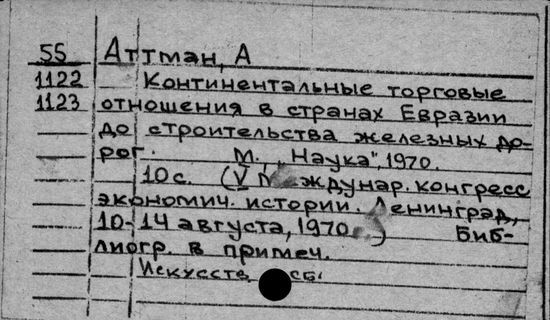 55 Аттман, А
1122 Континентальные торговые
1123 отношения в странах Евразии
до строительства железных до-
рог. М., „Наука", 1970.
10 с. (V Междунар. конгресс
экономич. истории. Ленинград,
10-14 августа, 1970.) Биб-
лиогр. в примеч.
Искусств. сб.